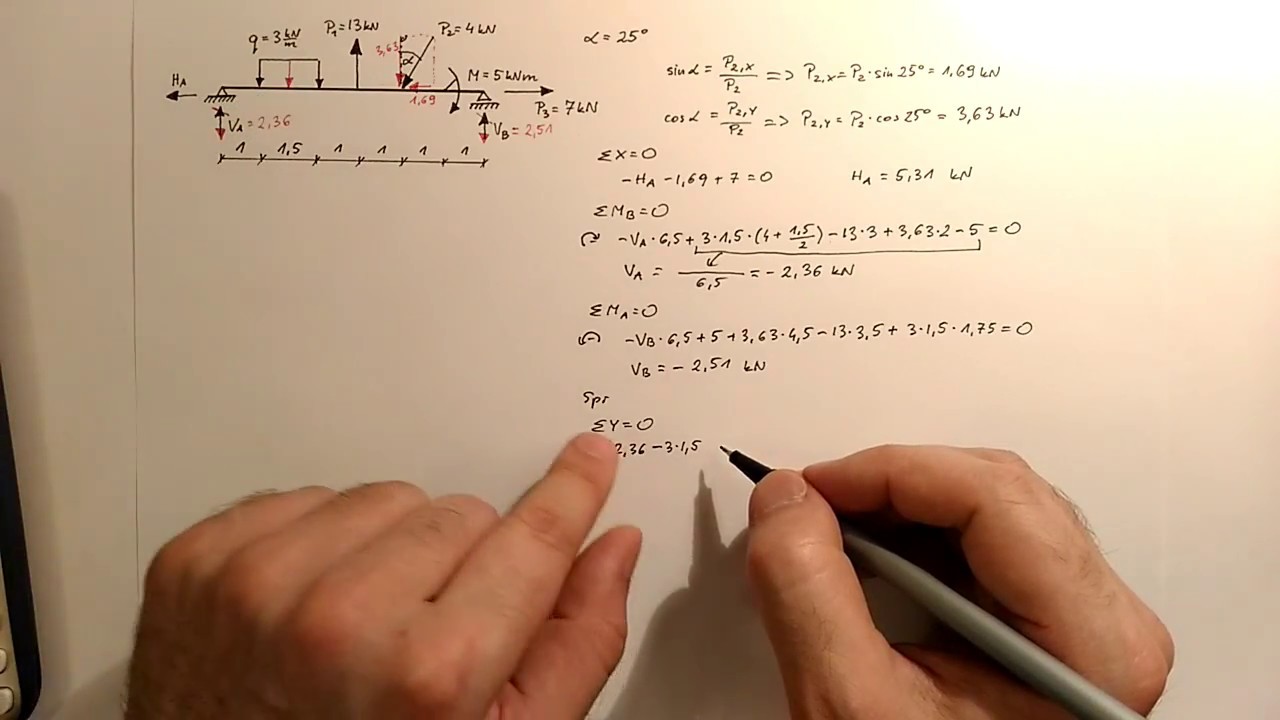 q = 3 kN/m
P1 = 13 kN
P2 = 4 kN
3,63
α
HA
M = 5 kNm
1,69
P3 = 7 kN
VA = 2,36
VB = 2,51
1 1,5 1 1 1 1
α = 25°
sin α = P2,X/P2 => P2,X = P2 · sin 25° = 1,69 kN
cos α = P2,Y/P2 => P2,Y = P2 · cos 25° = 3,63 kN
ΣX = 0
-HA - 1,69 + 7 = 0 HA = 5,31 kN
ΣMB = 0
-VA · 6,5 + 3 · 1,5 · (4 + 1,5/2) - 13 · 3 + 3,63 · 2 - 5 = 0
VA = ―/6,5 = - 2,36 kN
ΣMA = 0
-VB · 6,5 + 5 + 3,63 · 4,5 - 13 · 3,5 + 3 · 1,5 · 1,75 = 0
VB = - 2,51 kN
Spr
ΣY = 0
2,36 - 3 · 1,5